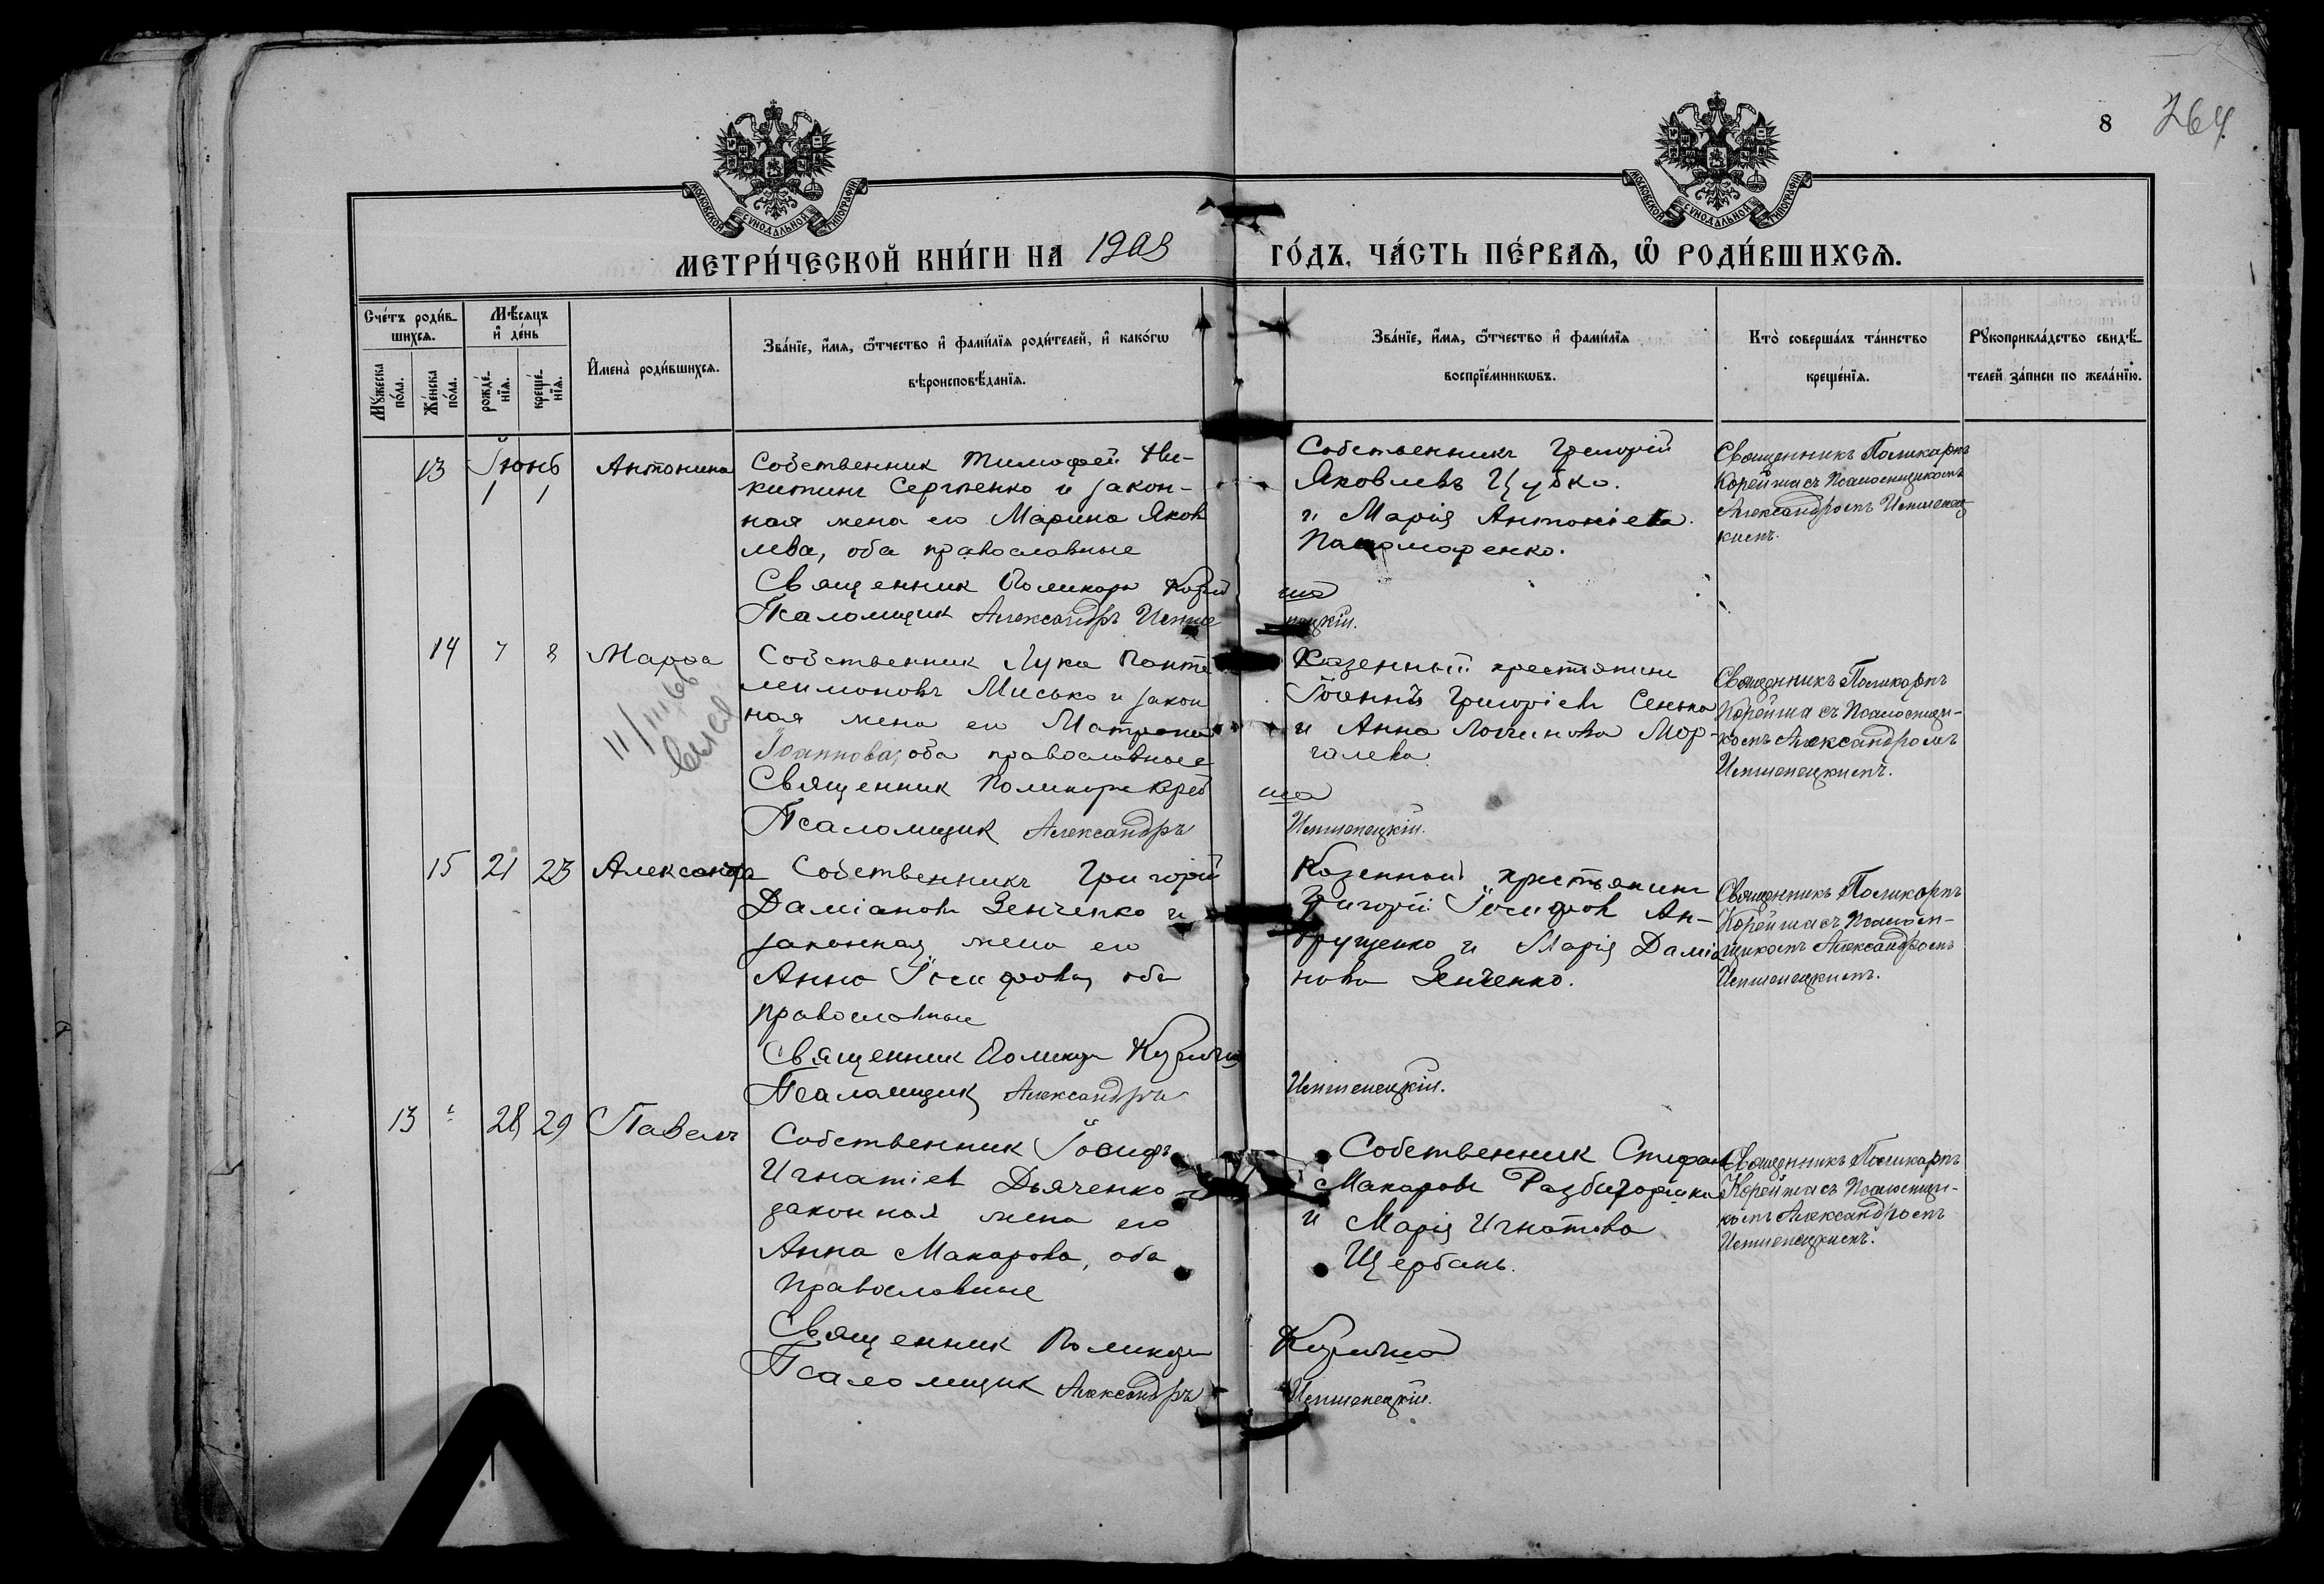 8
264
МОСКОВСКОЙ СУНОДАЛЬНОЙ ТИПОГРАФІИ
МОСКОВСКОЙ СУНОДАЛЬНОЙ ТИПОГРАФІИ
МЕТРИ́ЧЕСКОЙ КНИ́ГИ НА 1908 ГО́ДЪ, ЧА́СТЬ ПЕ́РВАѦ, Ѡ҆ РОДИ́ВШИХСѦ.
Сче́тъ роди́в-
шихсѧ.
Мꙋ́жеска по́ла.
Же́нска по́ла.
Мѣ́сѧцъ
и҆ де́нь
рожде́-
нїѧ.
креще́-
нїѧ.
И҆мена̀ роди́вшихсѧ.
Зва́нїе, и҆́мѧ, ѻ҆́тчество и҆ фами́лїѧ роди́телей, и҆ како́гѡ
вѣроисповѣ́данїѧ.
Зва́нїе, и҆́мѧ, ѻ҆́тчество и҆ фами́лїѧ
воспрїе́мникѡвъ.
Кто̀ соверша́лъ та́инство
креще́нїѧ.
Рꙋкоприкла́дство свидѣ́-
телей за́писи по жела́нїю.
13 Іюнь 1 1 Антонина
Собственник Тимофей Ни-
китинъ Сергіенко и закон-
ная жена его Марина Яков
лева, оба православные
Священник Поликарп Корей ша
Псаломщик Александръ Испше пецкій.
Собственникъ Григорій
Яковлевъ Цубко.
и Марія Антоніева
Пономаренко.
Священникъ Поликарпъ
Корейша съ Псаломщикомъ
Александромъ
кимъ.
14 7 8 Марѳа
11/III 66
Собственник Лука Панте
леимоновъ Мисько и закон
ная жена его Матрона
Іоаннова, оба православные
Священник Поликарп Корей ша
Псаломщик Александръ
Казенный крестьянинъ
Іоаннъ Григоріевъ Сенько
и Анна Логинова Мор-
галева
Священникъ Поликарпъ
Корейша съ Псаломщи-
комъ Александромъ
15 21 23 Александра
Собственникъ Григорій
Даміановъ Зенченко и
законная жена его
Анна Іосифова, оба
православные
Священник Поликарп Корейша
Псаломщик Александръ
Казенный крестьянинъ
Григорій Іосифов Ан-
друщенко и Марія Даміа
нова Зенченко.
Священникъ Поликарпъ
Корейша съ Псалом-
щикомъ Александромъ
13 28 29 Павелъ
Собственник Іосифъ
Игнатіев Дьяченко и
законная жена его
Анна Макарова, оба
православные
Священник Поликарп Корейша
Псаломщик Александръ
Собственник Стефан
Макаровъ
и Марія Игнатова
Щербань.
Священникъ Поликарпъ
Корейша съ Псаломщи-
комъ Александромъ